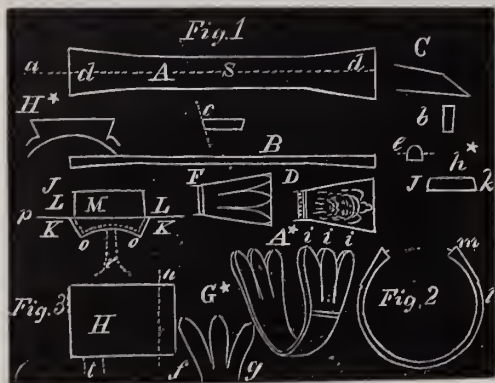 Fig. 1
a d A S d
C
H*
c
b
B
e
h*
J k
J
F D
L M L
p
K K
o o
A* i i i
m
n
Fig. 3
H
G*
Fig. 2
l
t
f g